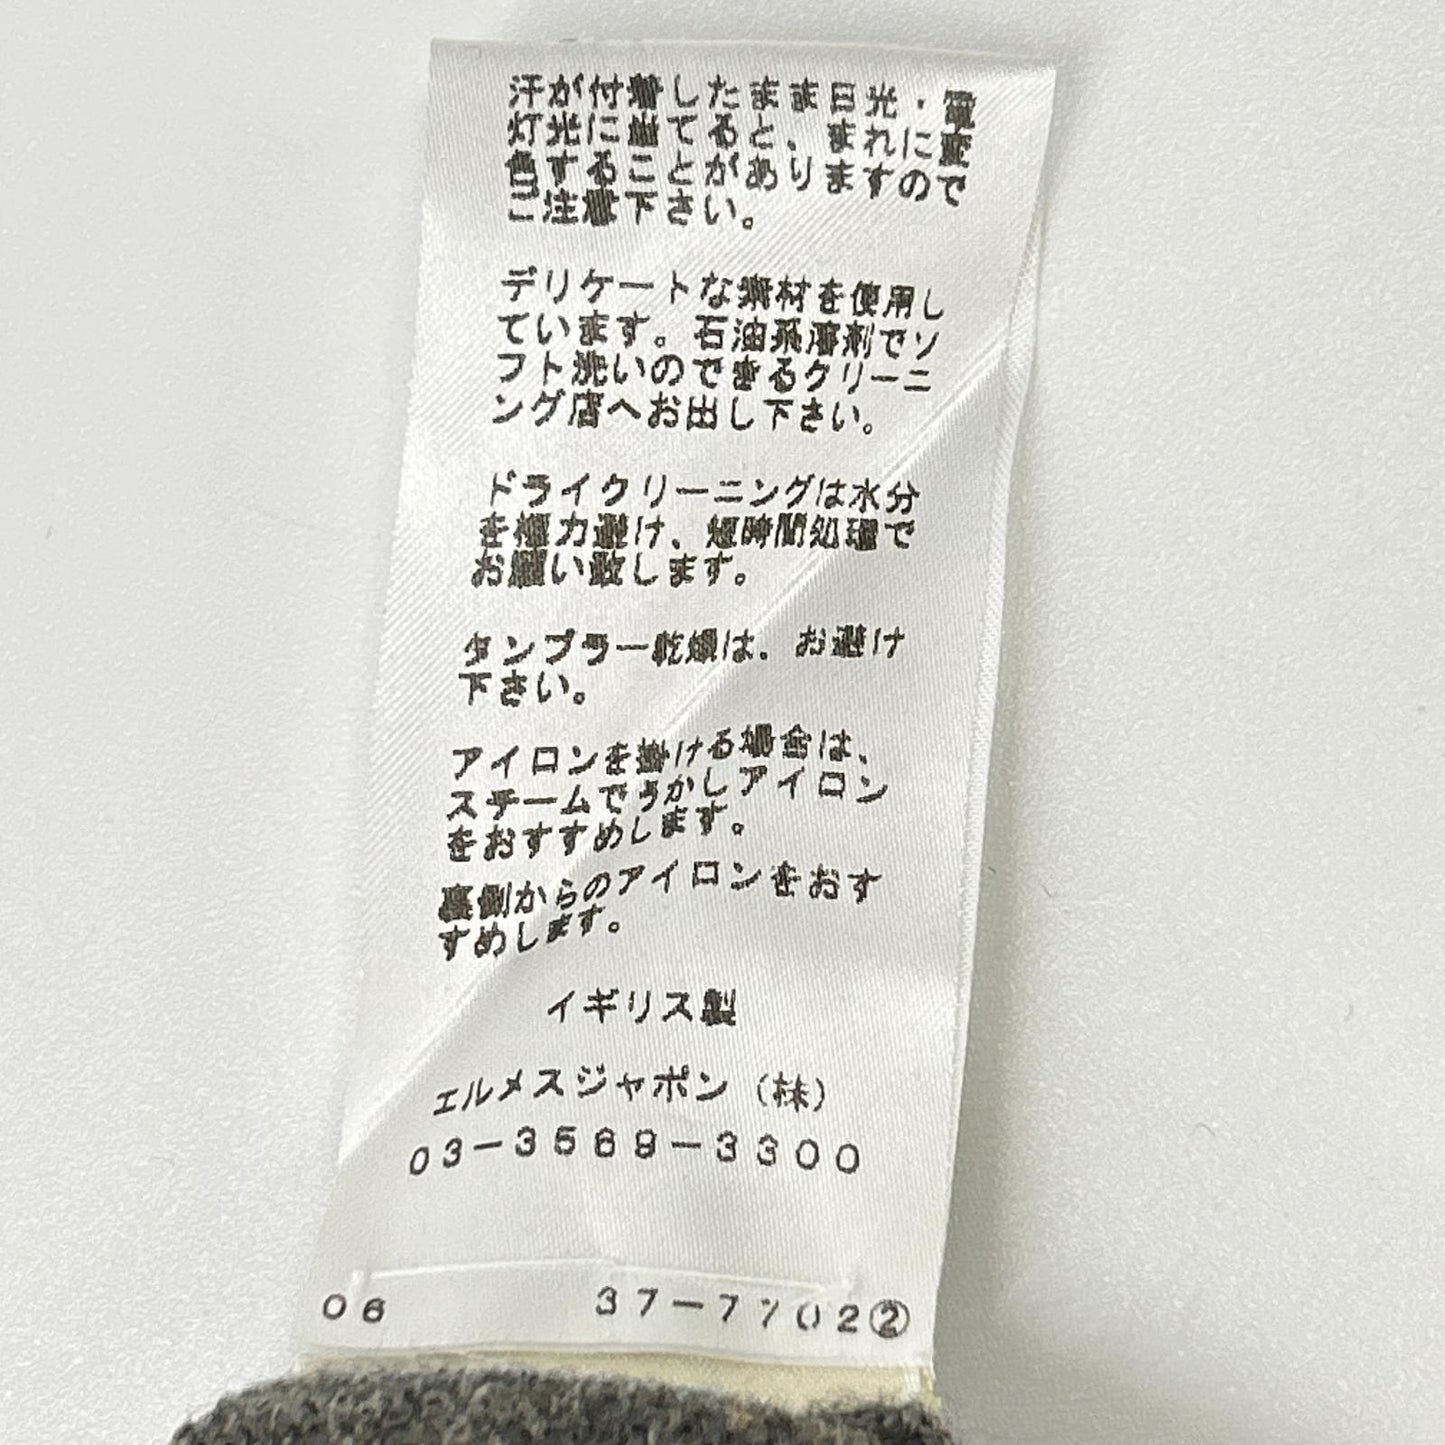 汗が付着したまま日光・電
灯光に当てると、まれに変
色することがありますので
ご注意下さい。
デリケートな素材を使用し
ています。石油系溶剤でソ
フト洗いのできるクリーニ
ング店へお出し下さい。
ドライクリーニングは水分
を極力避け、短時間処理で
お願い致します。
タンブラー乾燥は、お避け
下さい。
アイロンを掛ける場合は、
スチームでうかしアイロン
をおすすめします。
裏側からのアイロンをおす
すめします。
イギリス製
エルメスジャポン(株)
03-3569-3300
06 37-7702②